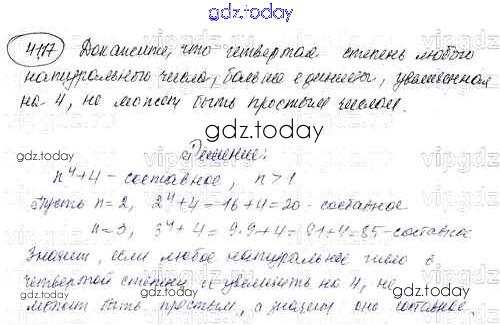 gdz.today
4.117 Докажите, что четвертая степень любого
натурального числа, больше единицы, увеличенная
на 4, не может быть простым числом.
gdz.today
gdz.today
Решение:
n⁴+4 – составное, n>1
Пусть n=2, 2⁴+4=16+4=20 - составное
n=3, 3⁴+4=9·9+4=81+4=85-составное
Значит, если любое натуральное число в
четвертой степени и увеличить на 4, не
может быть простым, а значит оно составное.
gdz.today